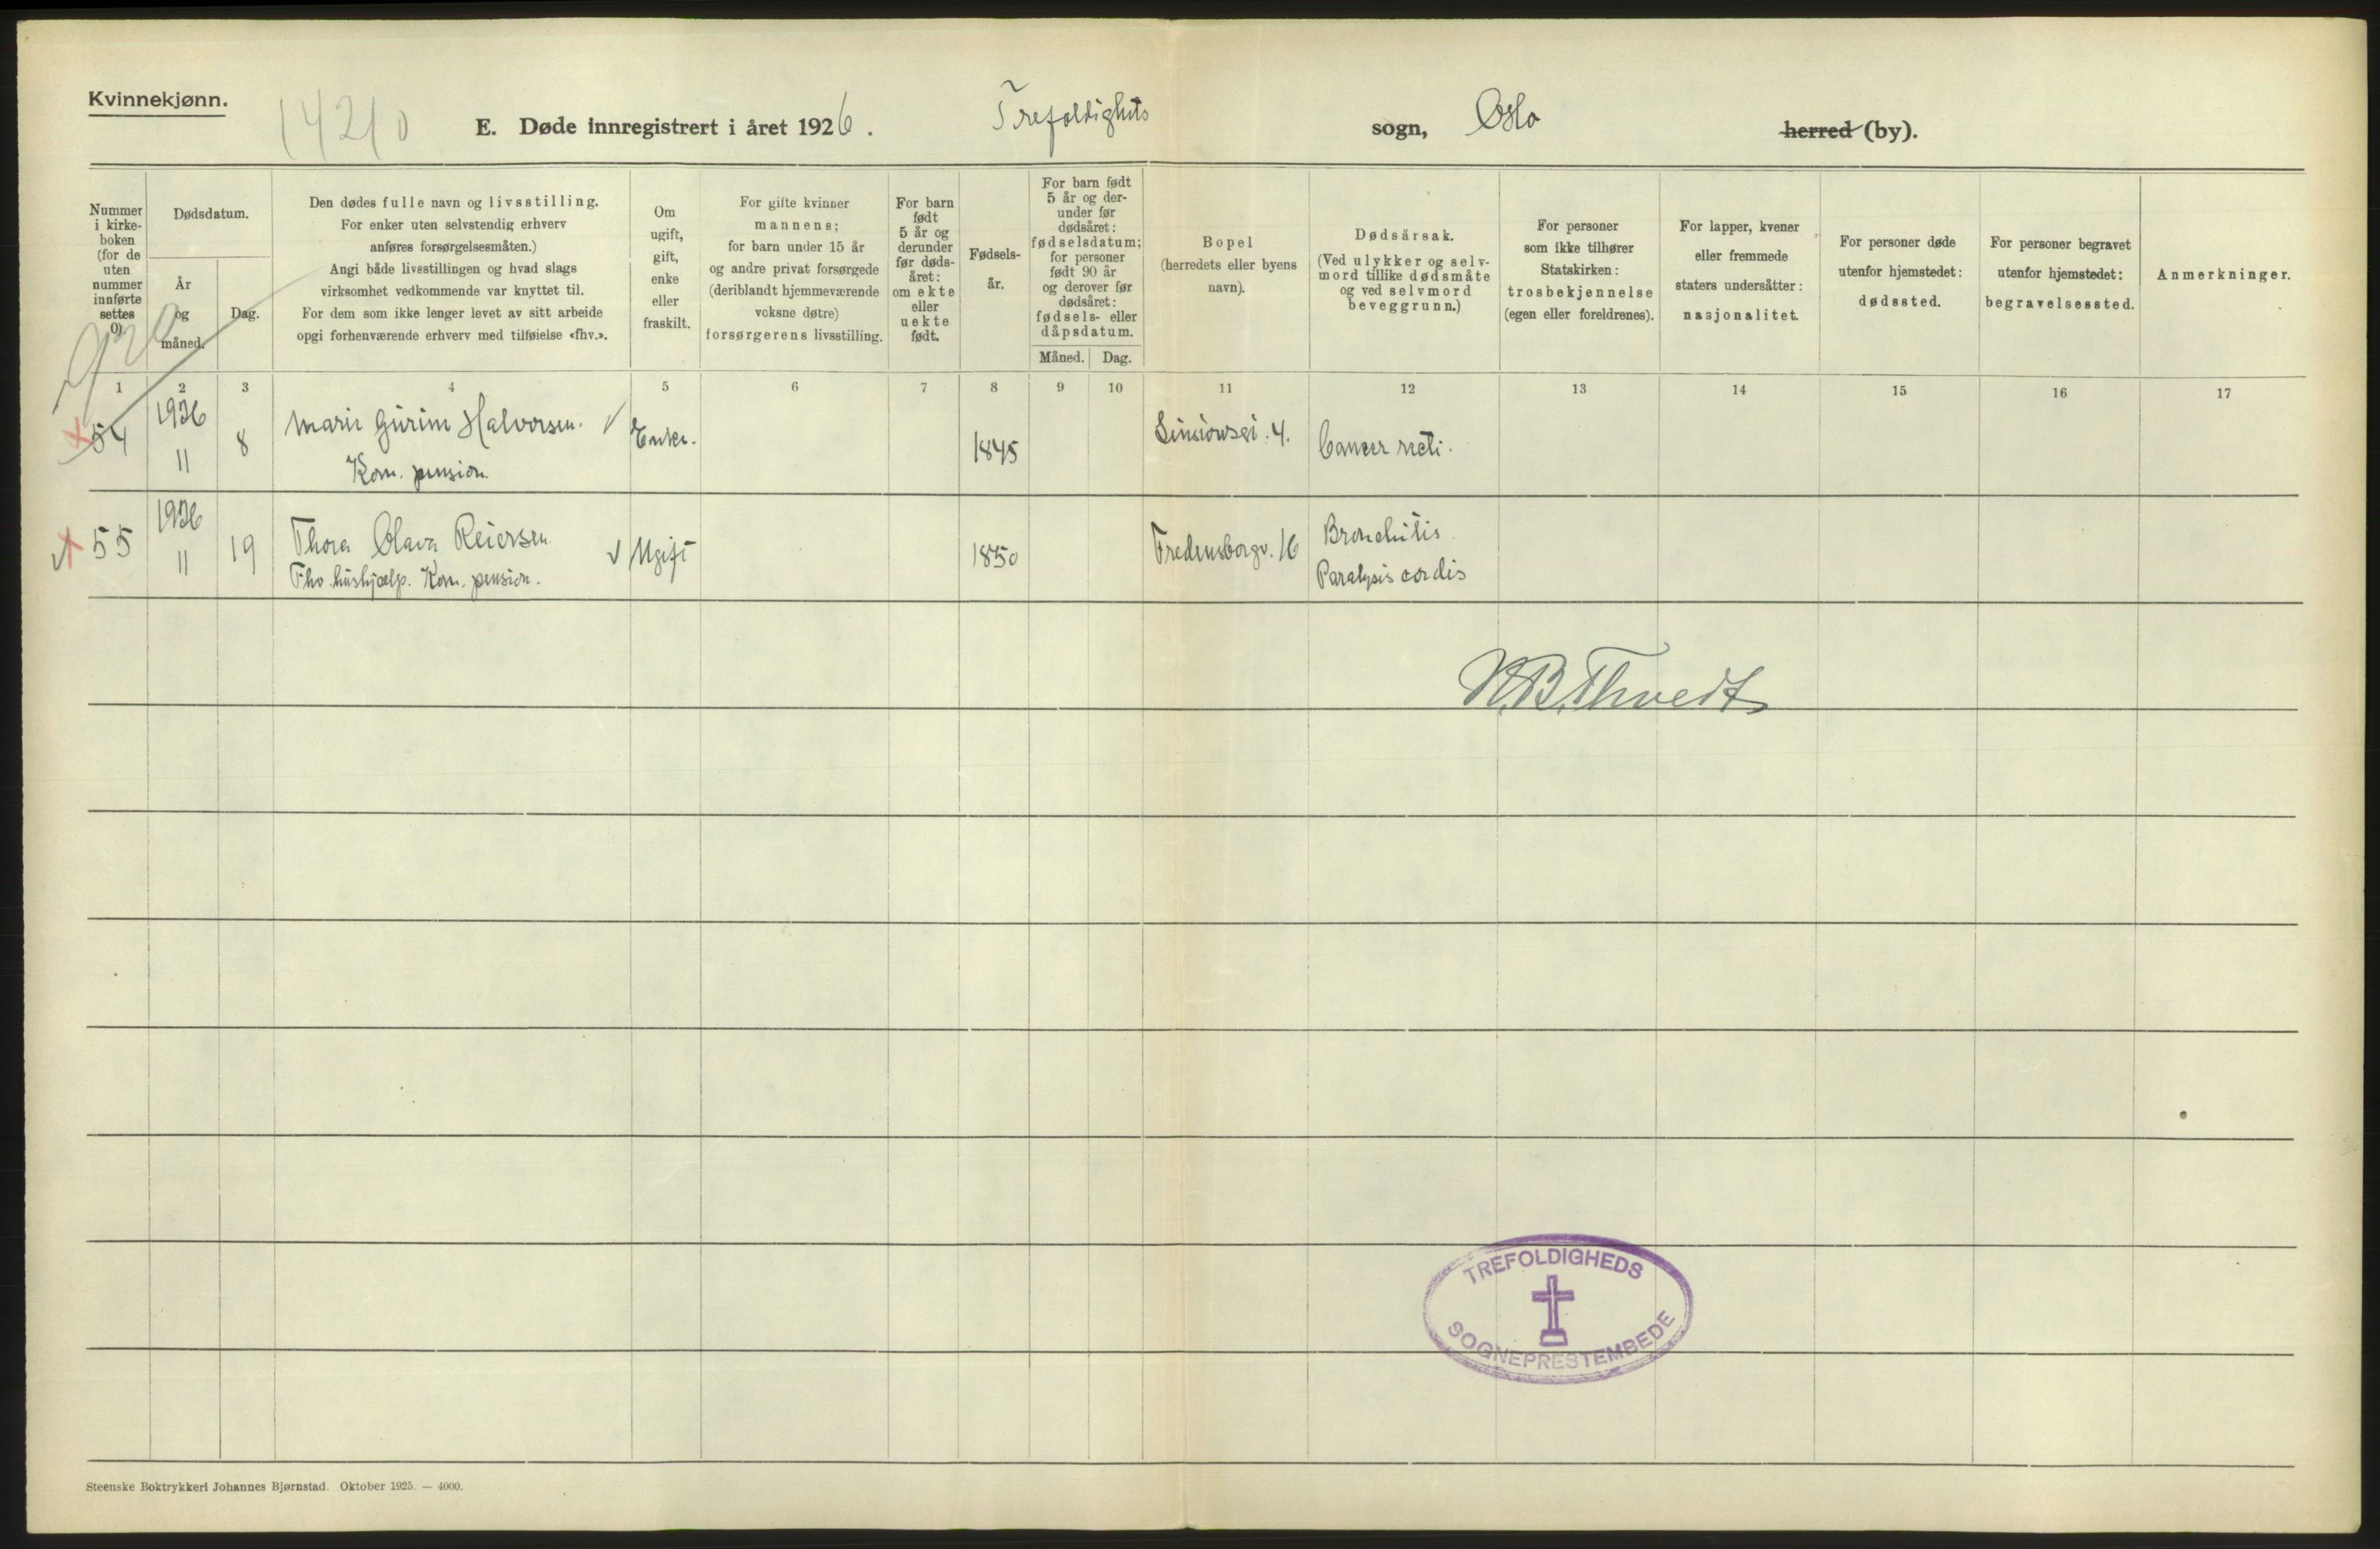 Kvinnekjønn.
14210
E. Døde innregistrert i året 1926.
Trefoldighets sogn, Oslo herred (by).
Nummer i kirke-
boken
(for de
uten
nummer
innførte
settes
0).
Dødsdatum.
År
og
måned.
Dag.
Den dødes fulle navn og livsstilling.
For enker uten selvstendig erhverv
anføres forsørgelsesmåten.)
Angi både livsstillingen og hvad slags
virksomhet vedkommende var knyttet til.
For dem som ikke lenger levet av sitt arbeide
opgi forhenværende erhverv med tilføielse «fhv.».
Om
ugift,
gift,
enke
eller
fraskilt.
For gifte kvinner
mannens;
for barn under 15 år
og andre privat forsørgede
(deriblandt hjemmeværende
voksne døtre)
forsørgerens livsstilling.
For barn
født
5 år og
derunder
før døds-
året:
om ekte
eller
uekte
født.
Fødsels-
år.
For barn født
5 år og der-
under før
dødsåret:
fødselsdatum;
for personer
født 90 år
og derover før
dødsåret:
fødsels- eller
dåpsdatum.
Måned. Dag.
Bopel
(herredets eller byens
navn).
Dødsårsak.
(Ved ulykker og selv-
mord tillike dødsmåte
og ved selvmord
beveggrunn.)
For personer
som ikke tilhører
Statskirken:
trosbekjennelse
(egen eller foreldrenes).
For lapper, kvener
eller fremmede
staters undersåtter:
nasjonalitet.
For personer døde
utenfor hjemstedet:
dødssted.
For personer begravet
utenfor hjemstedet:
begravelsessted.
Anmerkninger.
1 2 3 4 5 6 7 8 9 10 11 12 13 14 15 16 17
54 1926 11 8 Marie Gurine Halvorsen. Enke. 1845 Sinsenvei. 4. Cancer recti.
Kom. pension
55 1926 11 19 Thora Olava Reiersen Ugift 1850 Fredensborgv. 16 Bronchitis
Fhv. hushjælp. Kom. pension. Paralysis cordis
N.B. Thvedt
TREFOLDIGHEDS
SOGNEPRESTEMBEDE
Steenske Boktrykkeri Johannes Bjørnstad. Oktober 1925. — 4000.